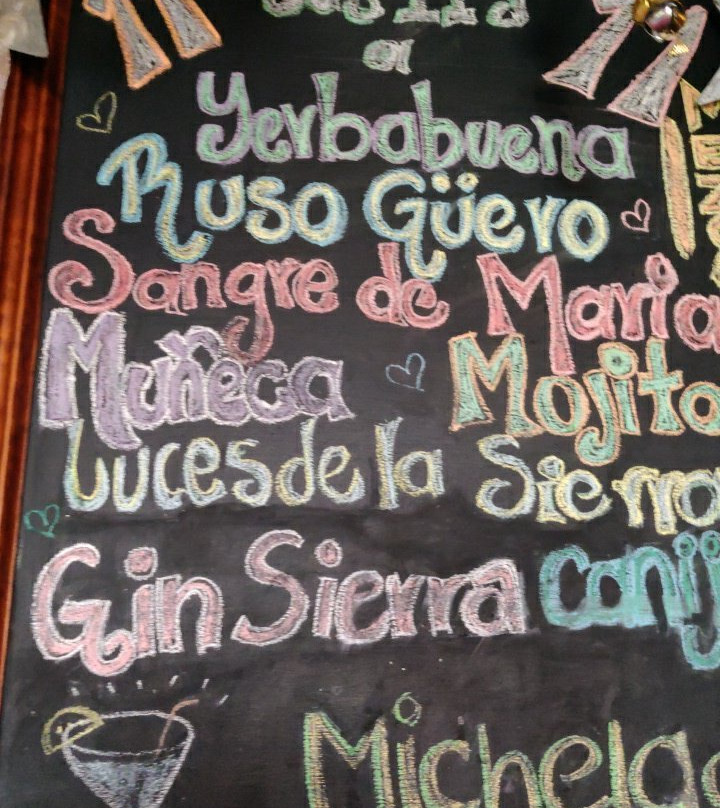 a
Yerbabuena
Ruso Güero
Sangre de Maria
Muñeca Mojito
Luces de la Sierra
Gin Sierra